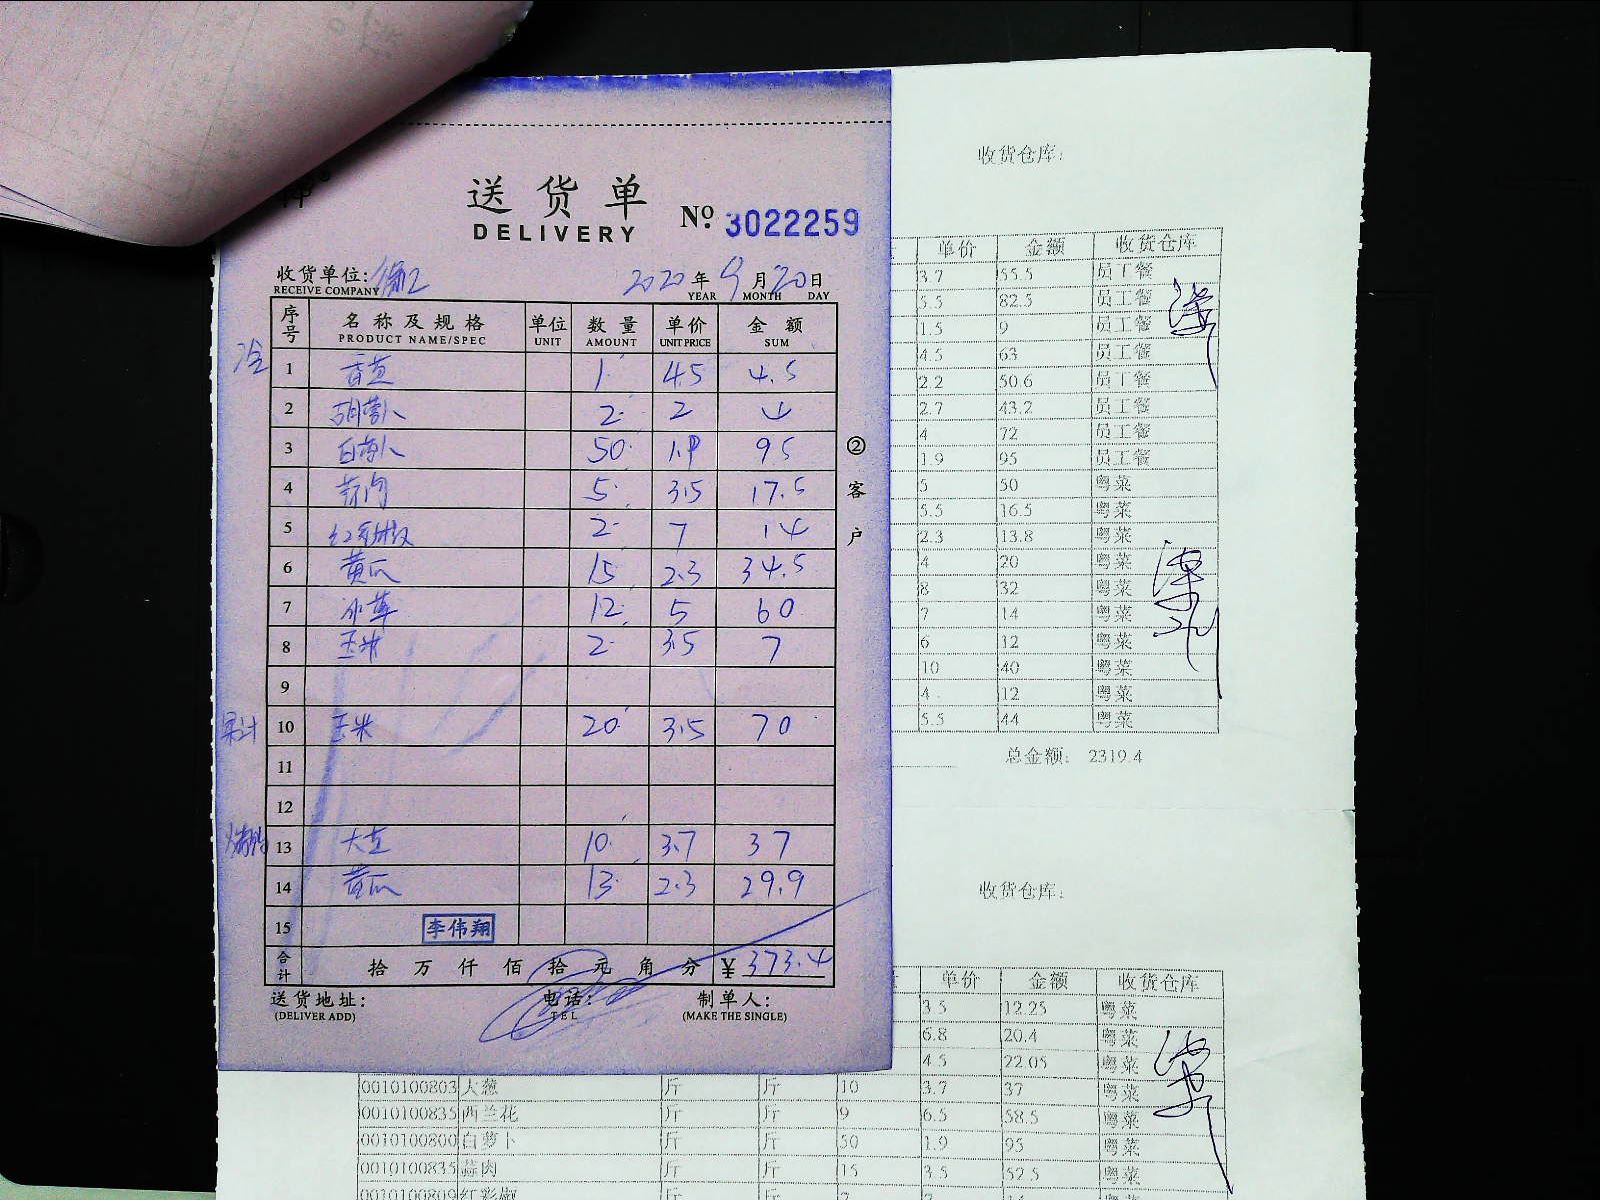 送货单
DELIVERY
No. 3022259
收货单位:
RECEIVE COMPANY
2020年9月20日
YEAR MONTH DAY
序号 名称及规格 单位 数量 单价 金额
PRODUCT NAME/SPEC UNIT AMOUNT UNIT PRICE SUM
冷
1 1 4.5 4.5
2 胡萝卜 2 2 4
3 白萝卜 50 1.9 95
4 5 3.5 17.5
5 2 7 14
6 黄瓜 15 2.3 34.5
7 冰草 12 5 60
8 玉米 2 3.5 7
9
果汁
10 玉米 20 3.5 70
11
12
13 10 3.7 37
14 黄瓜 13 2.3 29.9
15 李伟翔
合计 拾万仟佰拾元角分 ¥373.4
送货地址:
(DELIVER ADD)
电话:
TEL
制单人:
(MAKE THE SINGLE)
②客户
收货仓库:
单价 金额 收货仓库
3.7 55.5 员工餐
5.5 82.5 员工餐
1.5 9 员工餐
4.5 63 员工餐
2.2 50.6 员工餐
2.7 43.2 员工餐
4 72 员工餐
1.9 95 员工餐
5 50 粤菜
5.5 16.5 粤菜
2.3 13.8 粤菜
4 20 粤菜
8 32 粤菜
7 14 粤菜
6 12 粤菜
10 40 粤菜
4 12 粤菜
5.5 44 粤菜
总金额: 2319.4
收货仓库:
单价 金额 收货仓库
3.5 12.25 粤菜
6.8 20.4 粤菜
4.5 22.05 粤菜
0010100803 大葱 斤 斤 10 3.7 37 粤菜
0010100835 西兰花 斤 斤 9 6.5 58.5 粤菜
0010100800 白萝卜 斤 斤 50 1.9 95 粤菜
0010100835 蒜肉 斤 斤 15 3.5 52.5 粤菜
0010100809 红彩椒 斤 斤 2 7 14 粤菜